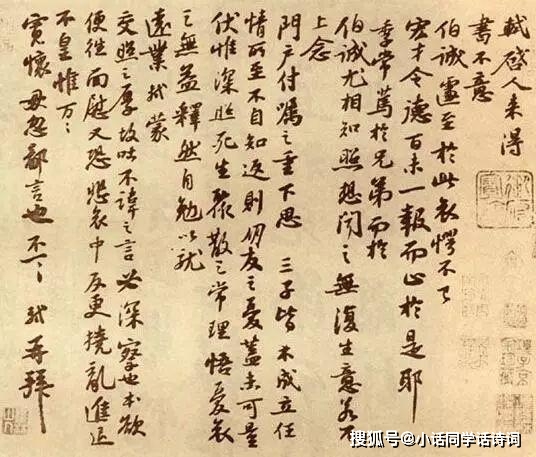 軾啓人來得
書不意
伯誠遽至於此哀愕不已
宏才令德百未一報而止於是耶
季常篤於兄弟而於
伯誠尤相知照想聞之無復生意若不
上念
門户付囑之重下思三子皆未成立任
情所至不自知返則朋友之憂蓋未可量
伏惟深照死生聚散之常理悟憂哀
之無益釋然自勉以就
遠業軾蒙
交照之厚故吐不諱之言必深察也本欲
便往面慰又恐悲哀中反更撓亂進退
不皇惟萬〻
寬懷毋忽鄙言也不一〻軾再拜
搜狐号@小话同学话诗词